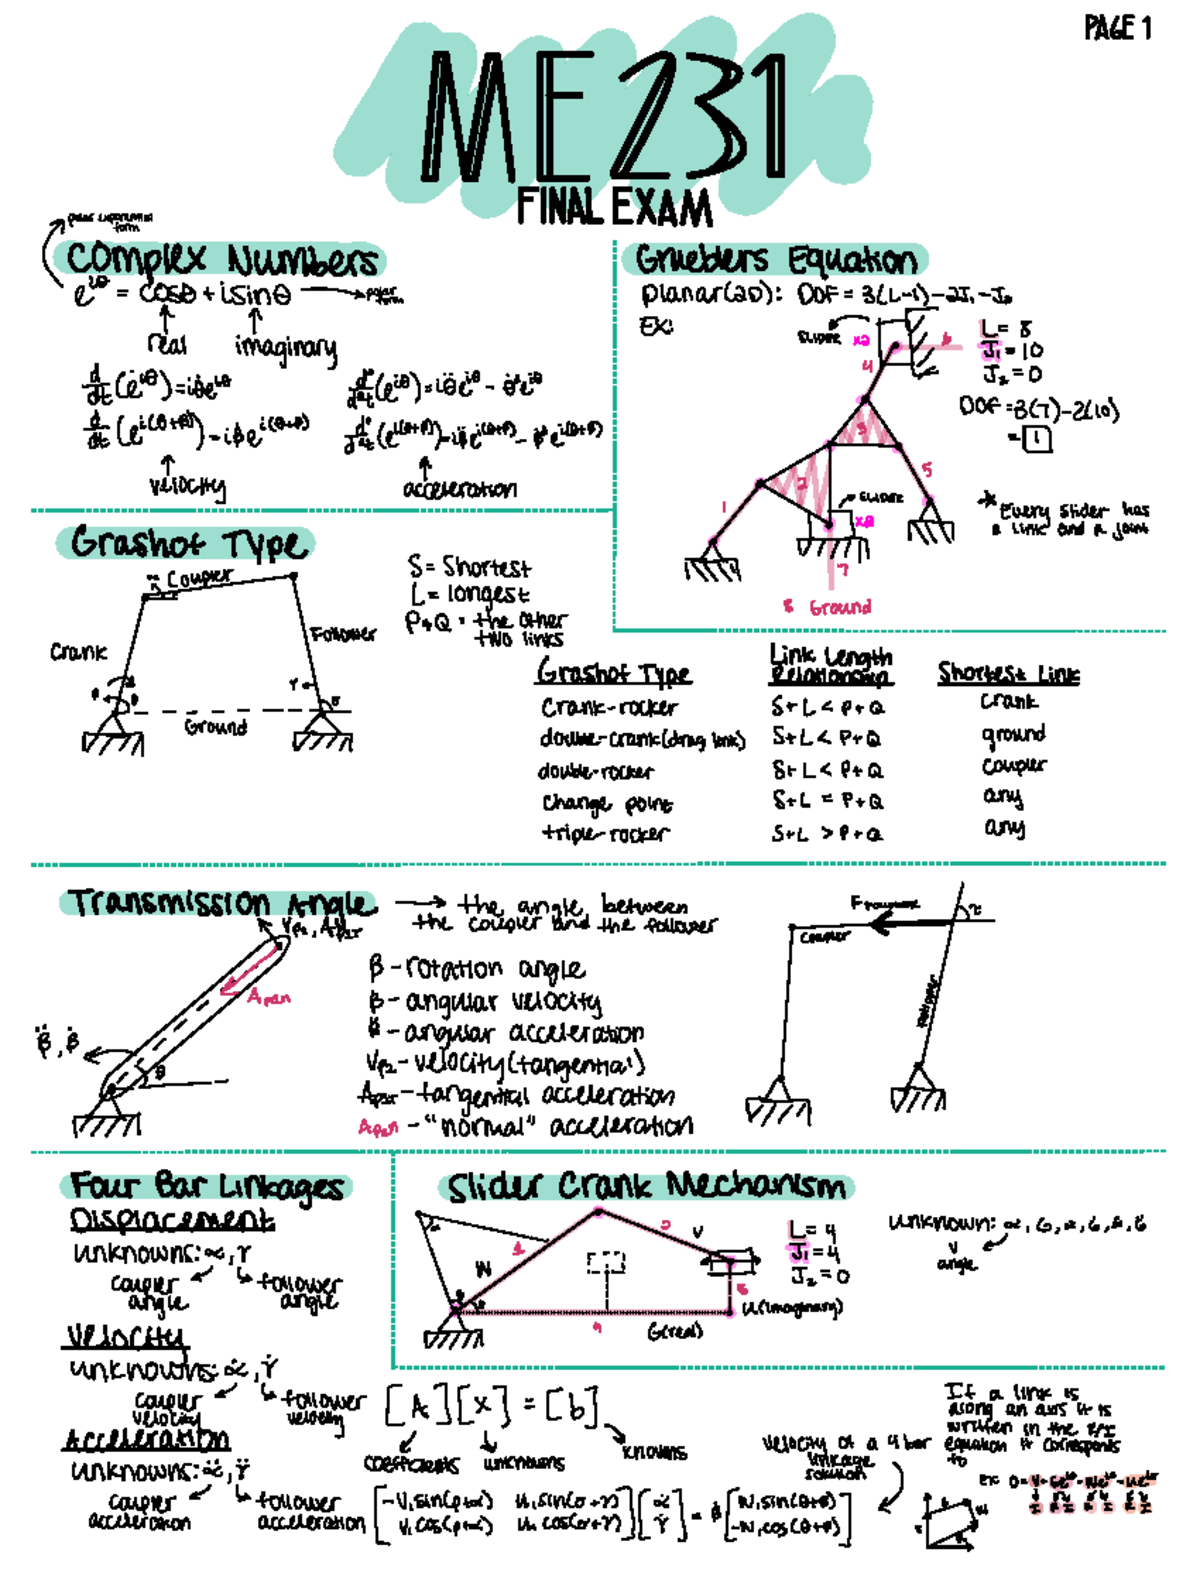 PAGE 1
ME231
FINAL EXAM
polar exponential form
Complex Numbers
e^iθ = cosθ + isinθ → polar form
real imaginary
d/dt(e^iθ) = iθ̇e^iθ
d/dt(e^i(θ+β)) = iβ̇e^i(θ+β)
velocity
d²/d²t(e^iθ) = iθ̈e^iθ - θ̇²e^iθ
d²/d²t(e^i(θ+β)) = iβ̈e^i(θ+β) - β̇²e^i(θ+β)
acceleration
Grueblers Equation
planar(2D): DOF = 3(L-1) - 2J₁ - J₂
EX:
SLIDER x2
L = 8
J₁ = 10
J₂ = 0
DOF = 3(7) - 2(10)
= 1
1 2 3 4 5 6 7
SLIDER x2
8 Ground
* Every slider has
a link and a joint
Grashof Type
Coupler
Crank
Follower
Ground
S = Shortest
L = longest
P+Q = the other
two links
Grashof Type Link Length Relationship Shortest Link
Crank-rocker S+L < P+Q Crank
double-crank(drag link) S+L < P+Q ground
double-rocker S+L < P+Q coupler
change point S+L = P+Q any
triple-rocker S+L > P+Q any
Transmission Angle → the angle between
the coupler and the follower
β - rotation angle
β̇ - angular velocity
β̈ - angular acceleration
Vp2 - velocity(tangential)
Ap2T - tangential acceleration
Ap2n - "normal" acceleration
Ap2n
β̈, β̇
β
Coupler
Follower
Four Bar Linkages
Displacement
unknowns: α, γ
coupler angle
follower angle
Velocity
unknowns: α̇, γ̇
coupler velocity
follower velocity
Acceleration
unknowns: α̈, γ̈
coupler acceleration
follower acceleration
Slider Crank Mechanism
W
V
L = 4
J₁ = 4
J₂ = 0
U(imaginary)
G(real)
angle
[A][x] = [b]
coefficients unknowns knowns
velocity of a 4 bar
linkage
solution
If a link is
along an axis it is
written in the
equation it corresponds
to
EX: